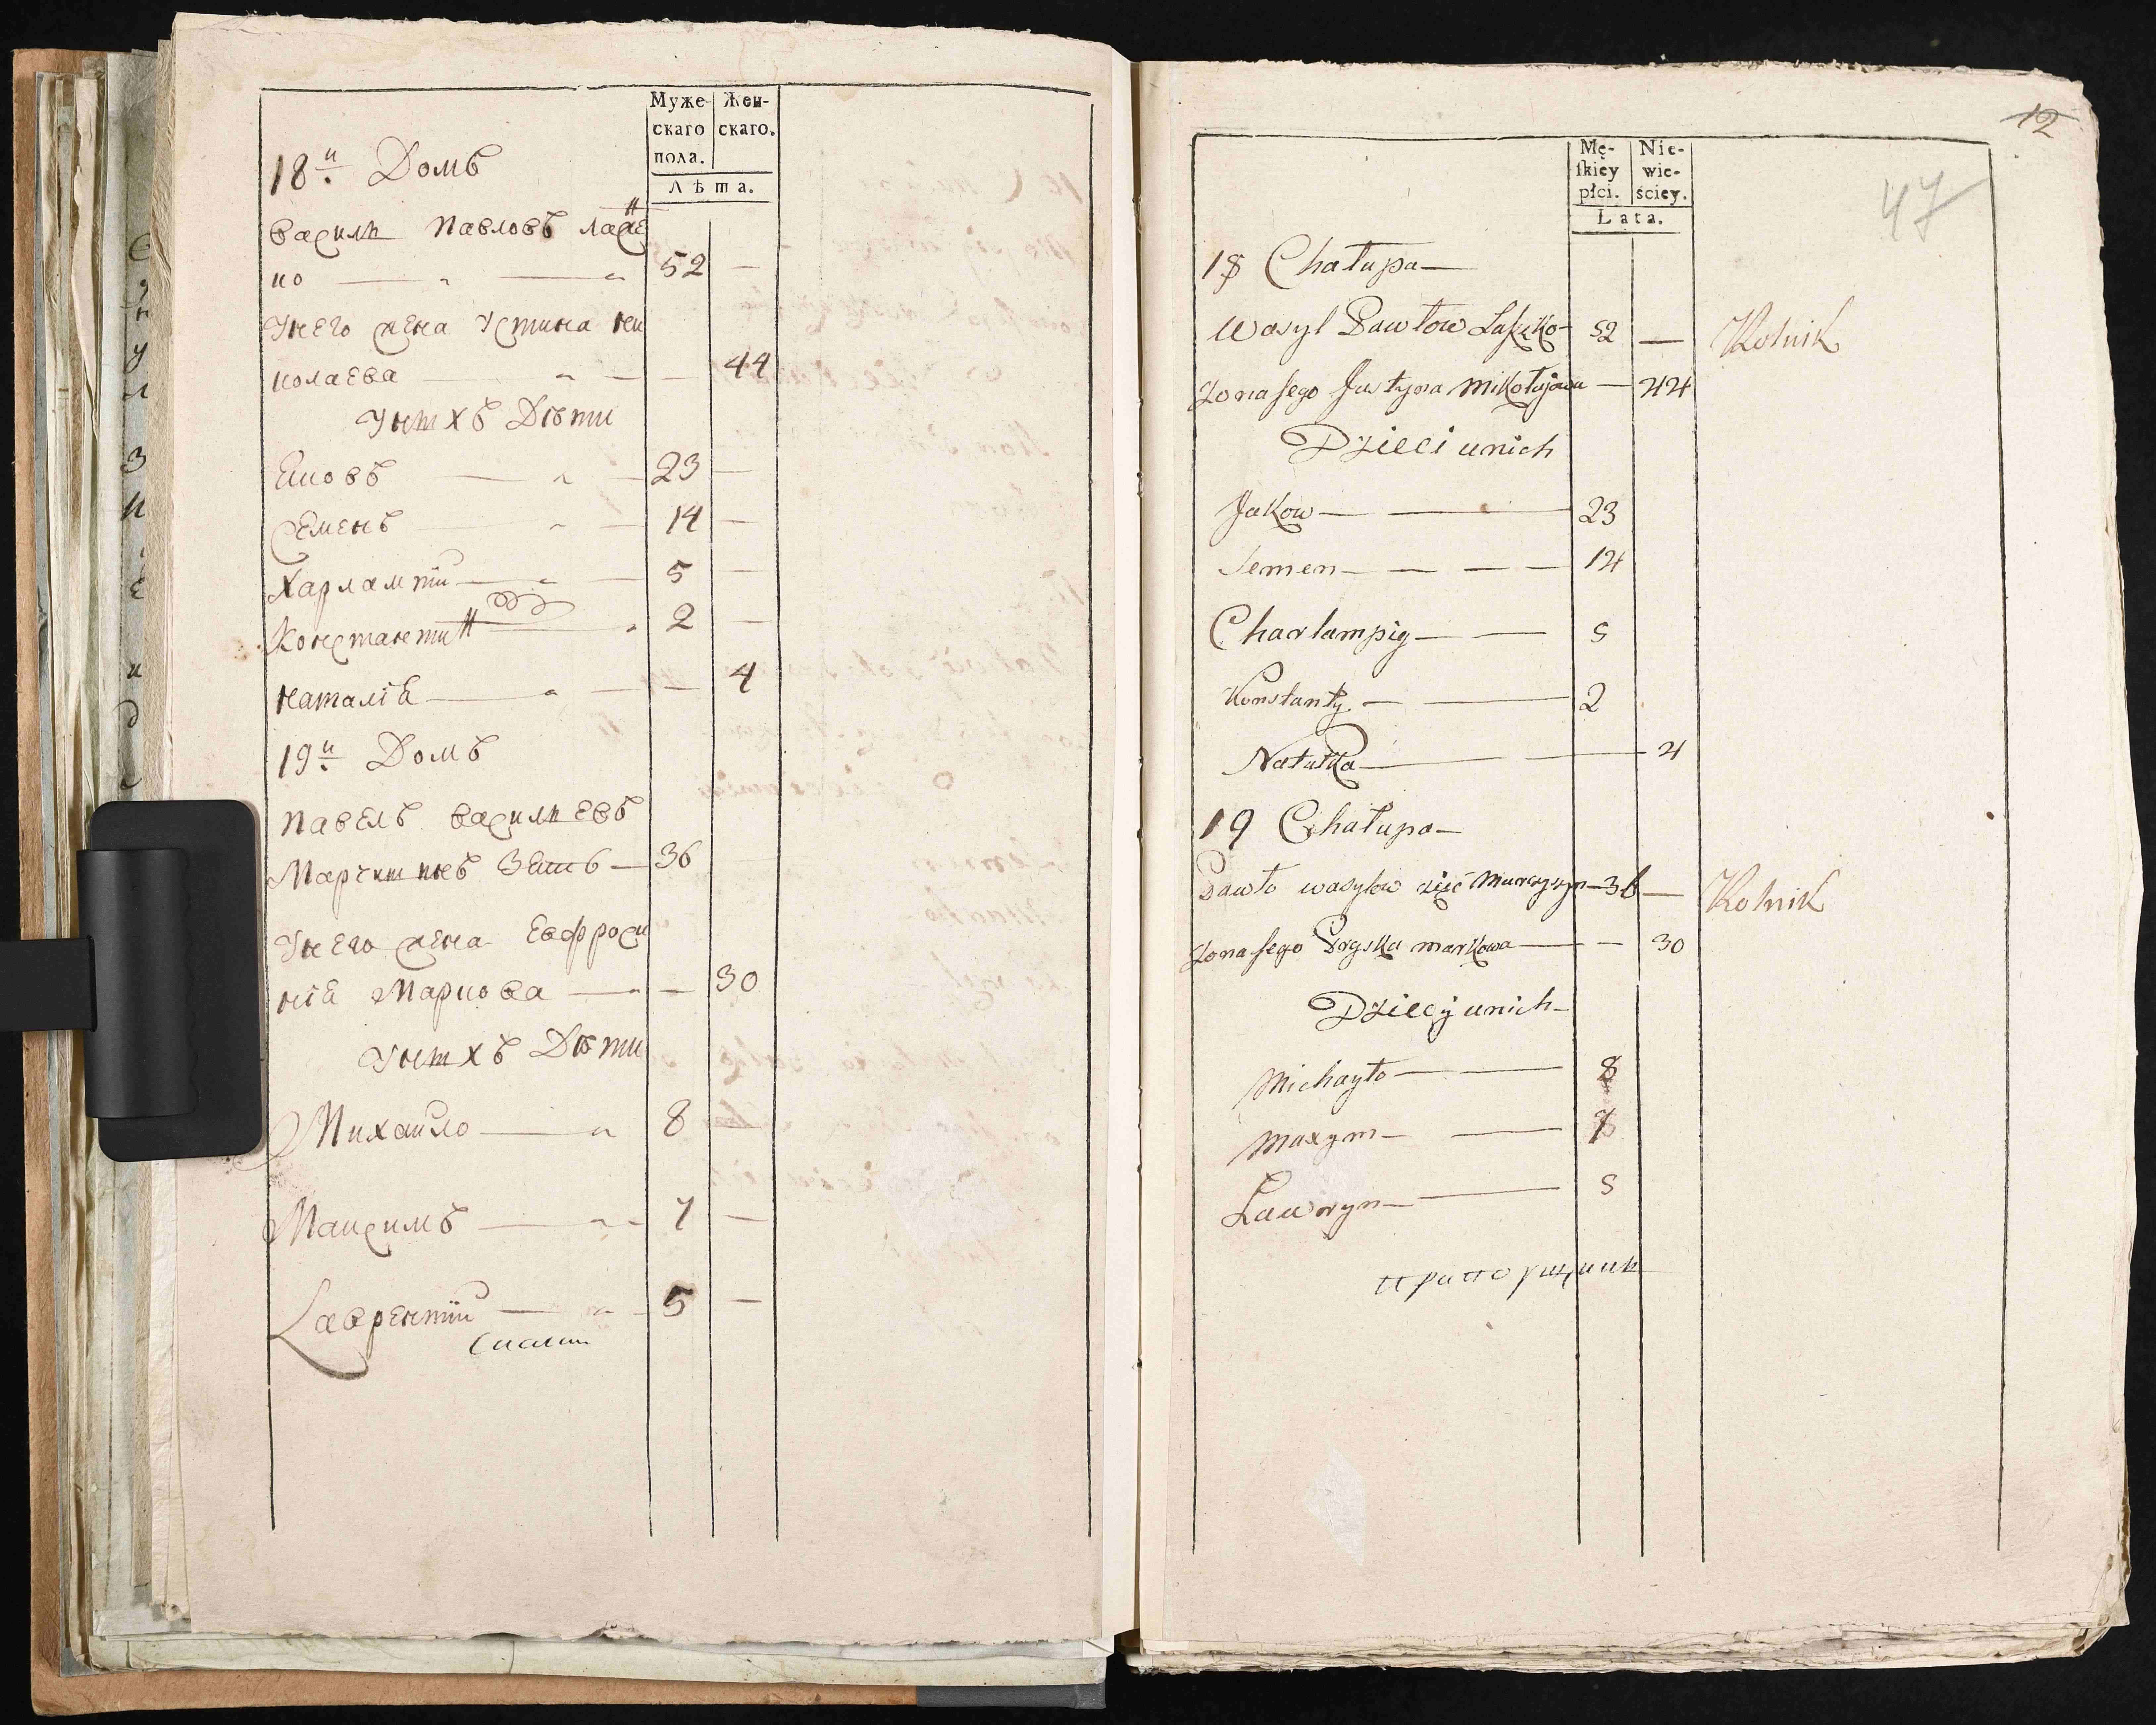 Муже-
скаго
пола.
Жен-
скаго.
Лѣта.
18й Домъ
Василь Павловъ
ко — 52 —
У него жена Устина Ни
колаева — — 44
У нихъ Дѣти
Яковъ — 23 —
Семенъ — 14 —
Харлампій — 5 —
Константин — 2 —
Наталія — — 4
19й Домъ
Павелъ Васильевъ
Зять — 36
У него жена Евфроси
нія Маркова — — 30
У нихъ Дѣти
Михайло — 8
Максимъ — 7 —
Лаврентій — 5 —
12
47
Mę-
skiey
płci.
Nie-
wie-
ściey.
Lata.
18 Chałupa —
Wasyl Pawłow 52 — Rolnik
Żona jego Justyna Mikołajowa — 44
Dzieci u nich
Jakow — — 23
Semen — — — — 14
Charlampiy — — 5
Konstanty — — 2
Natałka — — 4
19 Chałupa —
Pawło Wasylow zięć — 36 — Rolnik
Żona jego Pryska Markowa — — 30
Dziecy u nich —
Michayło — — 8
Maxym — — 7
Ławryn — — 5